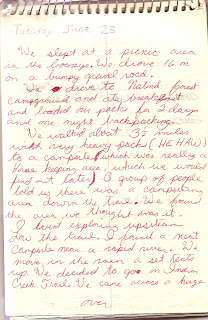 Tuesday June 23
We slept at a picnic area
in the We drove 16 m
on a bumpy gravel road.
We drove to forest
campground and ate breakfast
and loaded our packs for 2 days
and one night backpacking.
We walked about 3½ miles
with very heavy packs (HE HAW)
to a campsite, which was really a
horse keeping area, which we would
find out later. A group of people
told us there was a campsite
area down the trail. We found
the area we thought was it.
I went exploring upstream
the trail. I found a neat
campsite near a rapid river. We
move in the rain a set tents
up. We decided to go on Indian
Creek Trail. We came across a huge
over